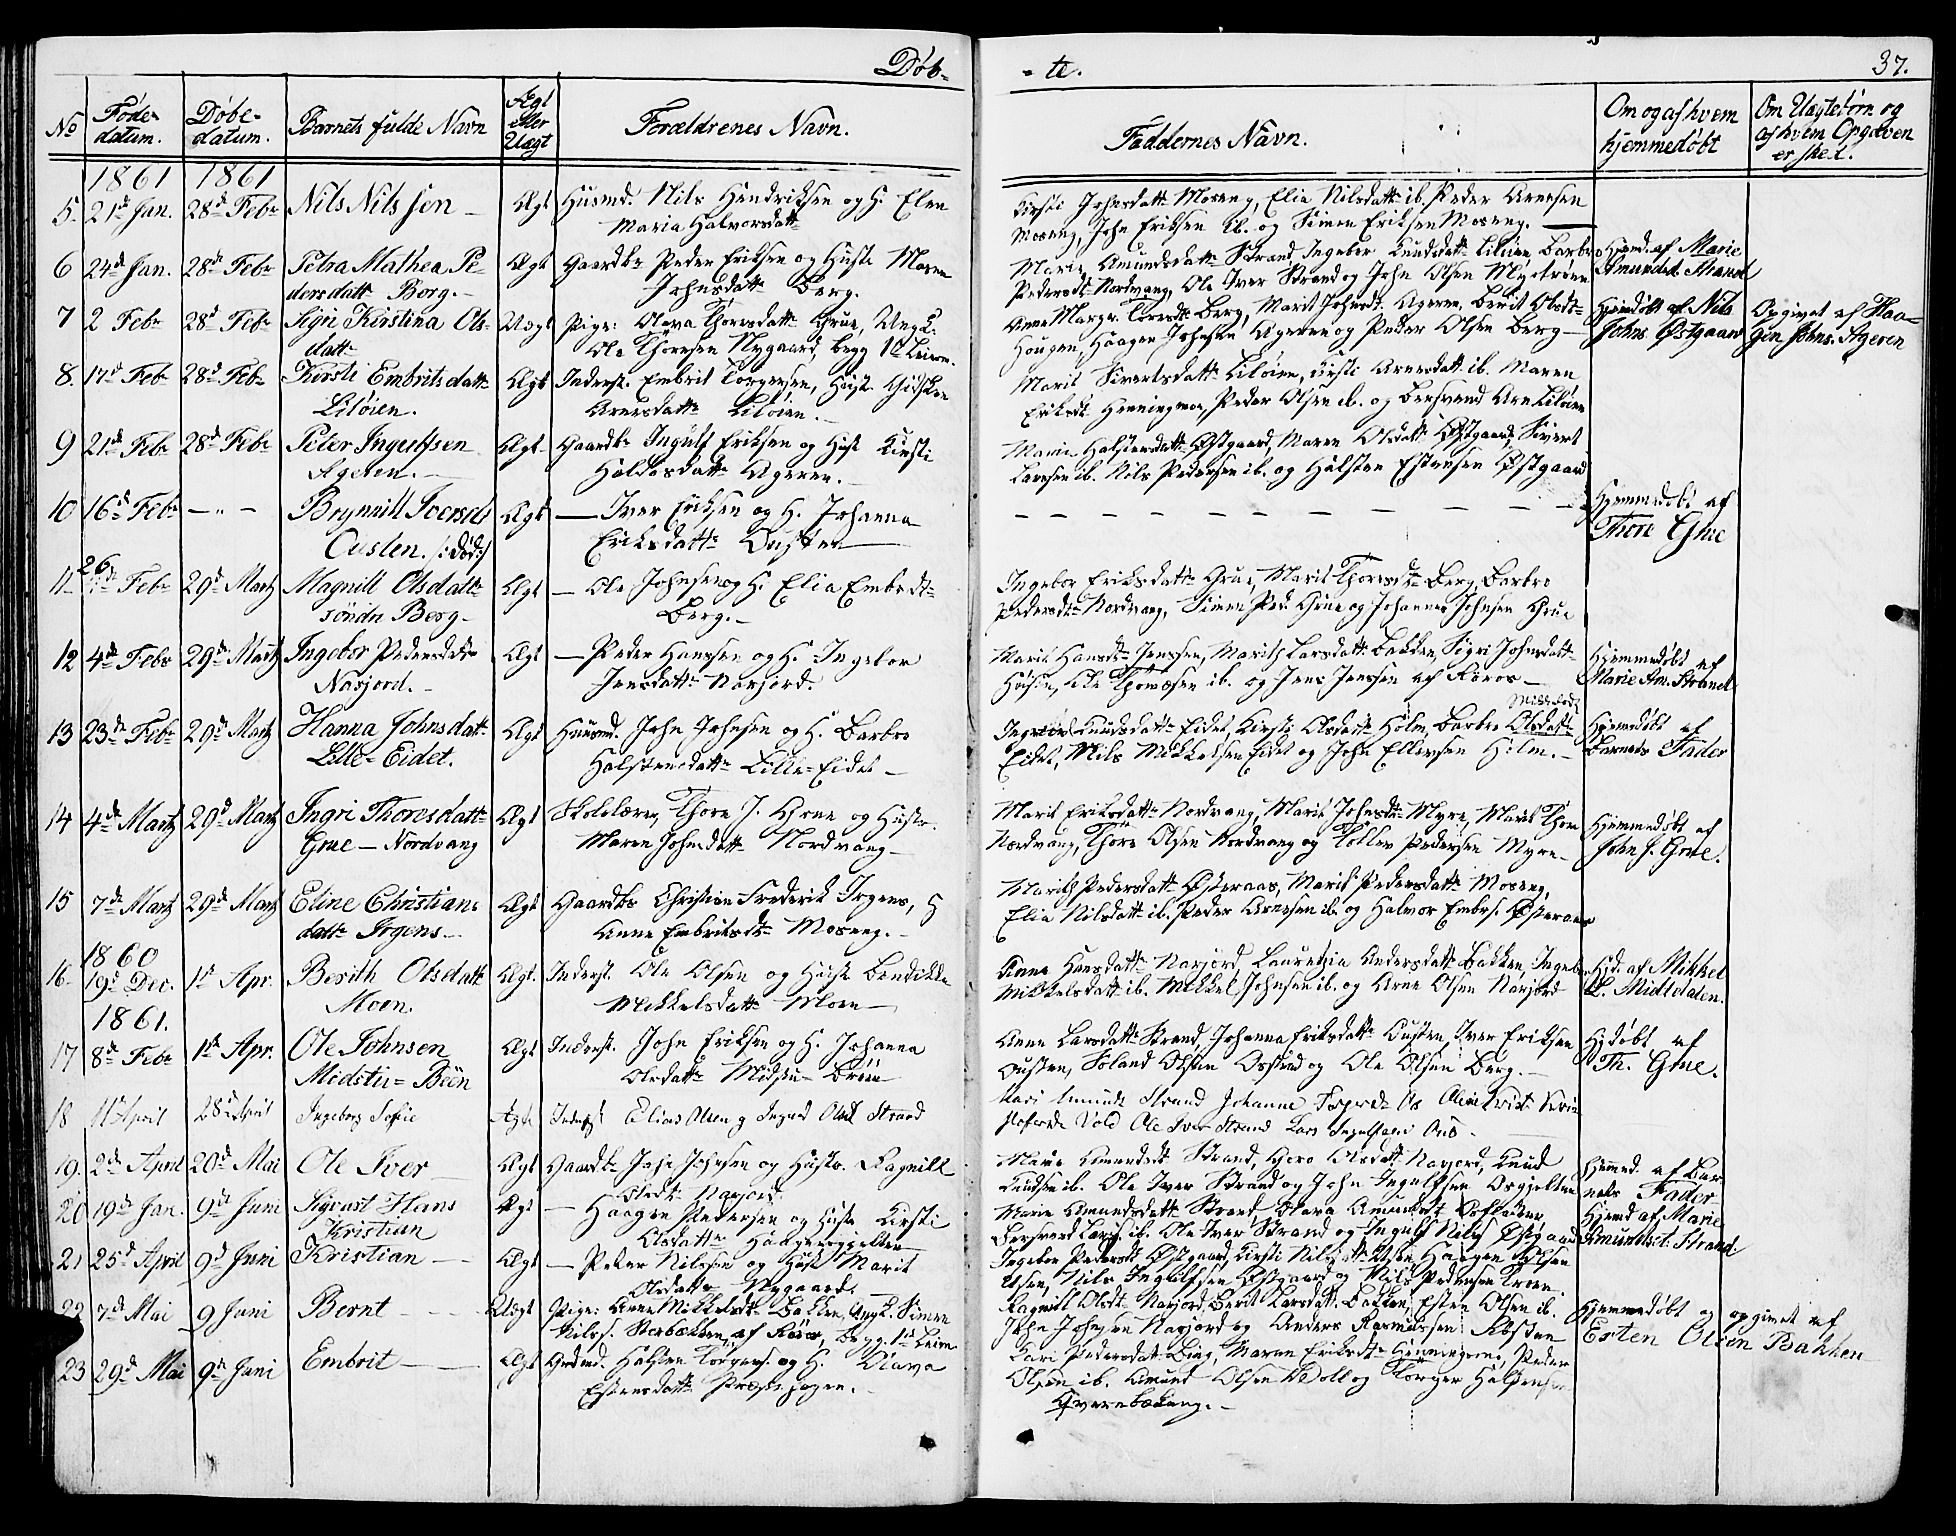 Døb-
- te.
37.
No
Føde-
datum.
Døbe-
datum.
Barnets fulde Navn
Ægt
eller
Uægt
Forældrenes Navn.
Faddernes Navn.
Om og af hvem
hjemmedøbt
Om Uægtebørn og
af hvem Opgaven
er skeet.
1861 1861
5. 21de Jan. 28de Febr Nils Nilssen Ægt Husmd. Nils Hendriksen og H. Elen
Maria Halvorsdatt
Kirsti Johnsdatt Moseng, Elia Nilsdatt ib. Peder Arnesen
Moseng, John Eriksen ib. og Simen Eriksen Moseng.
6 24de Jan. 28de Febr Petra Mathea Pe-
dersdatt Borg. Ægt Gaardbr Peder Eriksen og Hustr Maren
Johnsdatt Berg.
Marie Amundsdatt Strand, Ingebor Knudsdatt Liløien, Barbro
Pedersdt Nordvang, Ole Iver Strand og John Olsen
Hjemd. af Marie
Amundsd. Strand
7 2 Febr 28de Febr Sigri Kirstina Ols-
datt Uægt Pige: Olava Thoresdatt Grue, Ungk.
Ole Thoresen Nygaard, begg 1ste Leierm.
Anne Margr. Toresdt Berg, Marit Johnsdt Ageren, Berit Olsdt
Hougen, Haagen Johnsen Ageren og Peder Olsen Berg
Hjemdøbt af Nils
Johns. Østgaard
Opgivet af Haa-
gen Johns. Ageren
8. 17de Feb 28de Feb. Kirsti Embritsdatt
Liløien. Ægt Inderst. Embrit Torgersen, Hust. Gidsken
Arnesdatt Liløien.
Marit Sivertsdatt Liløien, Kirsti Arnesdatt ib. Maren
Eriksdt Henningmoe, Peder Olsen ib. og Bersvend Arn Liløien
9 21de Feb 28de Feb Peter Ingulfsen
Ageren. Ægt Gaardbr Ingulf Eriksen og Hust Kirsti
Haldosdatt Ageren.
Marie Halstensdatt Østgaard, Maren Olsdatt Østgaard, Sivert
Larssen ib. Nils Pedersen ib. og Halsten Estensen Østgaard
10 16de Febr — " — Brynnill Iversd
Ousten. /: død :/ Ægt — Iver Eriksen og H. Johanna
Eriksdatt Ousten
Hjemmedøbt af
Thore Grue
11 26de Febr 29de Martz Magnill Olsdatt
søndre Berg Ægt — Ole Johnsen og H. Elia Embrdt
Berg.
Ingebor Eriksdatt Grue, Marit Thoresdt Berg, Barbro
Pedersdt Nordvang, Simen Ped. Grue og Johannes Johnsen Grue
12 4de Febr 29de Martz Ingebor Pedersdatt
Narjord. Ægt — Peder Hanssen og H. Ingebor
Jensdatt Narjord.
Marit Hansdt Jenssen, Marith Larsdatt Bakken, Sigri Johnsdatt
ib. og Jens Jenssen af Røros
Hjemmedøbt af
Marie Am. Strand
13 23de Febr 29de Martz Hanna Johnsdatt
Lille-Eidet. Ægt Husmd. John Johnsen og H. Barbro
Halstensdatt Lille-Eidet
Knudsdatt Eidet, Kirsti Olsdatt Holm, Barbro Olsdatt
Eidet, Nils Mikkelsen Eidet og John Ellensen Holm.
Hjemdøbt af
Barnets Fader
14 4de Martz 29de Martz Ingri Thoresdatt
Grue — Nordvang Ægt Skolelærer, Thore J. Grue og Hustr.
Maren Johnsdatt Nordvang
Marit Eriksdatt Nordvang, Marit Johnsdt Myre, Marit Thor
Nordvang, Thore Olsen Nordvang og Tollev Pedersen Myre
Hjemmedøbt af
John J. Grue.
15 7de Martz 29de Martz Eline Christians
datt Irgens Ægt Gaardbr Christian Frederik Irgens, H
Anne Embritsdt Moseng.
Marith Pedersdatt Østeraas, Marit Pedersdatt Moseng,
Elia Nilsdatt ib. Peder Arnesen ib. og Halvor Embrs. Østeraas
1860
16 19de Dec. 1ste Apr. Berith Olsdatt
Moen. Ægt. Inderst. Ole Olsen og Hust. Bendikke
Mikkelsdatt Moen
Anne Hansdatt Narjord, Lauretzia Andersdatt Bakken, Ingebor
Mikkelsdatt ib. Mikkel Johnsen ib. og Arne Olsen Narjord
Hjd. af Mikkel
Midtdalen.
1861.
17 8de Febr 1ste Apr. Ole Johnsen
Midstu-Brøn Ægt Inderst. John Eriksen og H. Johanna
Olsdatt Midstu-Brøn
Anne Larsdatt Strand, Johanna Eriksdatt Ousten, Iver Eriksen
Ousten, Erland Olsen og Ole Olsen Berg.
Hjdøbt af
Th. Grue.
18 11 April 28de April Ingeborg Sofie Ægte Inderst Elias Olsen og Ingrid Olsd Strand
Kari Amunds Strand Johanne
Vold Ole Iver Strand Lars Ingulfsen Ous
19. 2de April 20de Mai Ole Iver Ægt Gaardbr John Johnsen og Hustr. Ragnill
Olsdt Narjord.
Marie Amundsdt Strand, Goro Olsdatt Narjord, Knud
Knudsen ib. Ole Iver Strand og John Ingulfsen
Hjemmd. af Bar
nets Fader
20 19de Jan. 9de Juni Sigvart Hans
Kristian Ægt — Haagen Pedersen og Hustr Kirsti
Olsdatt
Marie Amundsdatt Strand, Olava Amundsdt
Bersvend Lars. ib. Ole Iver Strand og Ingulf Nils Østgaard
Hjemd af Marie
Amundsd. Strand
21 25de April 9de Juni Kristian Ægt — Peder Nilssen og Hust Marit
Olsdatt Nygaard.
Ingebor Pedersdt Østgaard, Kirsti Haagen Olsen
Nils Ingulfsen Østgaard og Nils Pedersen
22 7de Mai 9 Juni Bernt Uægt Pige: Anne Mikkelsdt Bakken, Ungk. Simen
Nilss. Storbekken af Røros, begg. 1ste Leierm
Ragnill Olsdt Narjord, Berit Larsdatt. Bakken, Esten Olsen ib.
John Johnsen Narjord og Anders Rasmussen
Hjemmedøbt og opgivet af
Esten Olsen Bakken
23 29de Mai 9de Juni Embrit Ægt Grdmd. Halsten Torgers. og H. Olava
Estensdatt
Kari Pedersdat Berg, Maren Eriksdt Henningmoe, Peder
Olsen ib. Amund Olsen Voll og Torger Halstensen
Kvernbækeng.